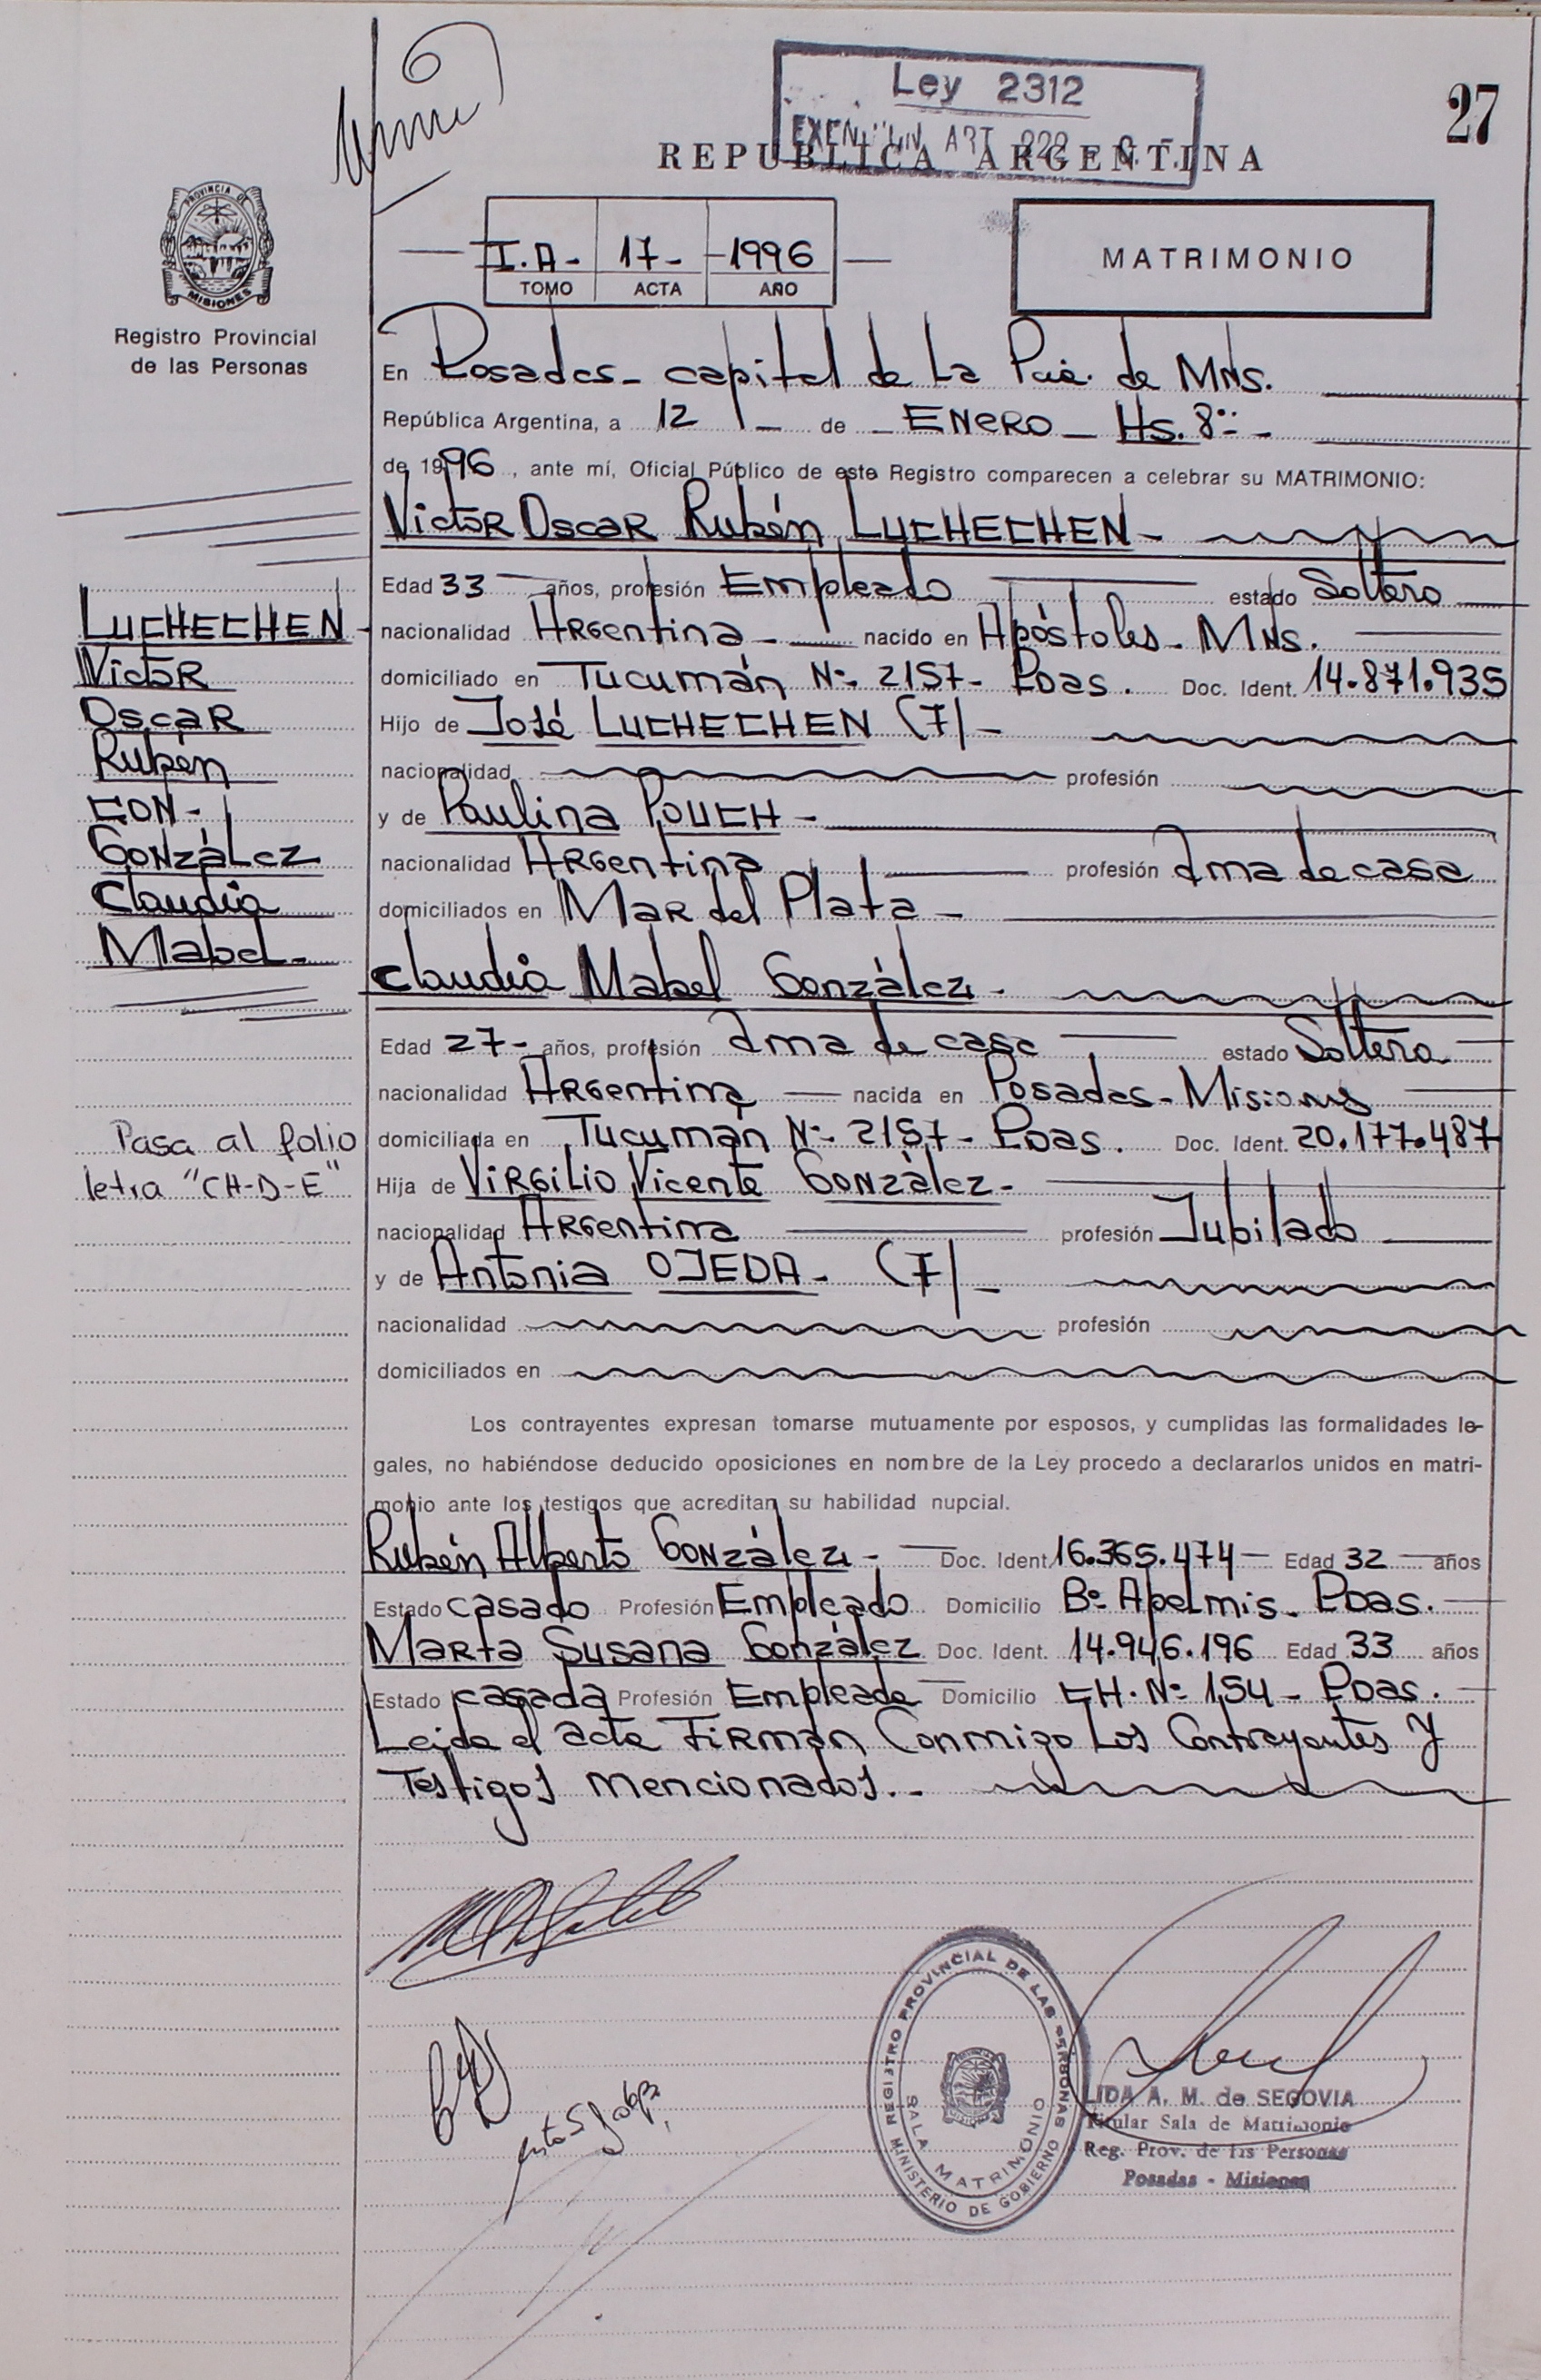 Ley 2312
27
ART 222
REPUBLICA ARGENTINA
PROVINCIA DE
MISIONES
Registro Provincial
de las Personas
I.A- 17- -1996
TOMO ACTA AÑO
MATRIMONIO
En Posadas- capital de La Pcia. de MNs.
República Argentina, a 12 - de - ENERO - Hs. 8:-
de 1996, ante mí, Oficial Público de este Registro comparecen a celebrar su MATRIMONIO:
Victor Oscar Rubén LUCHECHEN-
Edad 33 años, profesión Empleado estado Soltero
nacionalidad Argentina - nacido en Apóstoles- MNs.
domiciliado en Tucumán Nº- 2157- Pdas. Doc. Ident. 14.871.935
Hijo de José LUCHECHEN (F)-
nacionalidad profesión
y de Paulina
nacionalidad Argentina profesión Ama de casa
domiciliados en Mar del Plata -
Claudia Mabel González-
Edad 27- años, profesión Ama de casa estado Soltera
nacionalidad Argentina nacida en Posadas- Misiones
domiciliada en Tucumán Nº- 2157- Pdas. Doc. Ident. 20.177.487
Hija de Virgilio Vicente González-
nacionalidad Argentina profesión Jubilado
y de Antonia OJEDA- (F)-
nacionalidad profesión
domiciliados en
LUCHECHEN-
Victor
Oscar
Rubén
CON-
González
Claudia
Mabel-
Pasa al folio
letra "CH-D-E"
Los contrayentes expresan tomarse mutuamente por esposos, y cumplidas las formalidades le-
gales, no habiéndose deducido oposiciones en nombre de la Ley procedo a declararlos unidos en matri-
monio ante los testigos que acreditan su habilidad nupcial.
Rubén Alberto González- Doc. Ident. 16.365.474- Edad 32 años
Estado casado Profesión Empleado Domicilio Bº Apelmis- Pdas.
Marta Susana González Doc. Ident. 14.946.196 Edad 33 años
Estado casada Profesión Empleada Domicilio CH. Nº 154- Pdas.
Leida el acta Firman Conmigo Los Contrayentes Y
Testigos mencionados.-
REGISTRO PROVINCIAL DE LAS PERSONAS
SALA MATRIMONIO
MINISTERIO DE GOBIERNO
LIDA A. M. de SEGOVIA
Titular Sala de Matrimonio
Reg. Prov. de las Personas
Posadas - Misiones